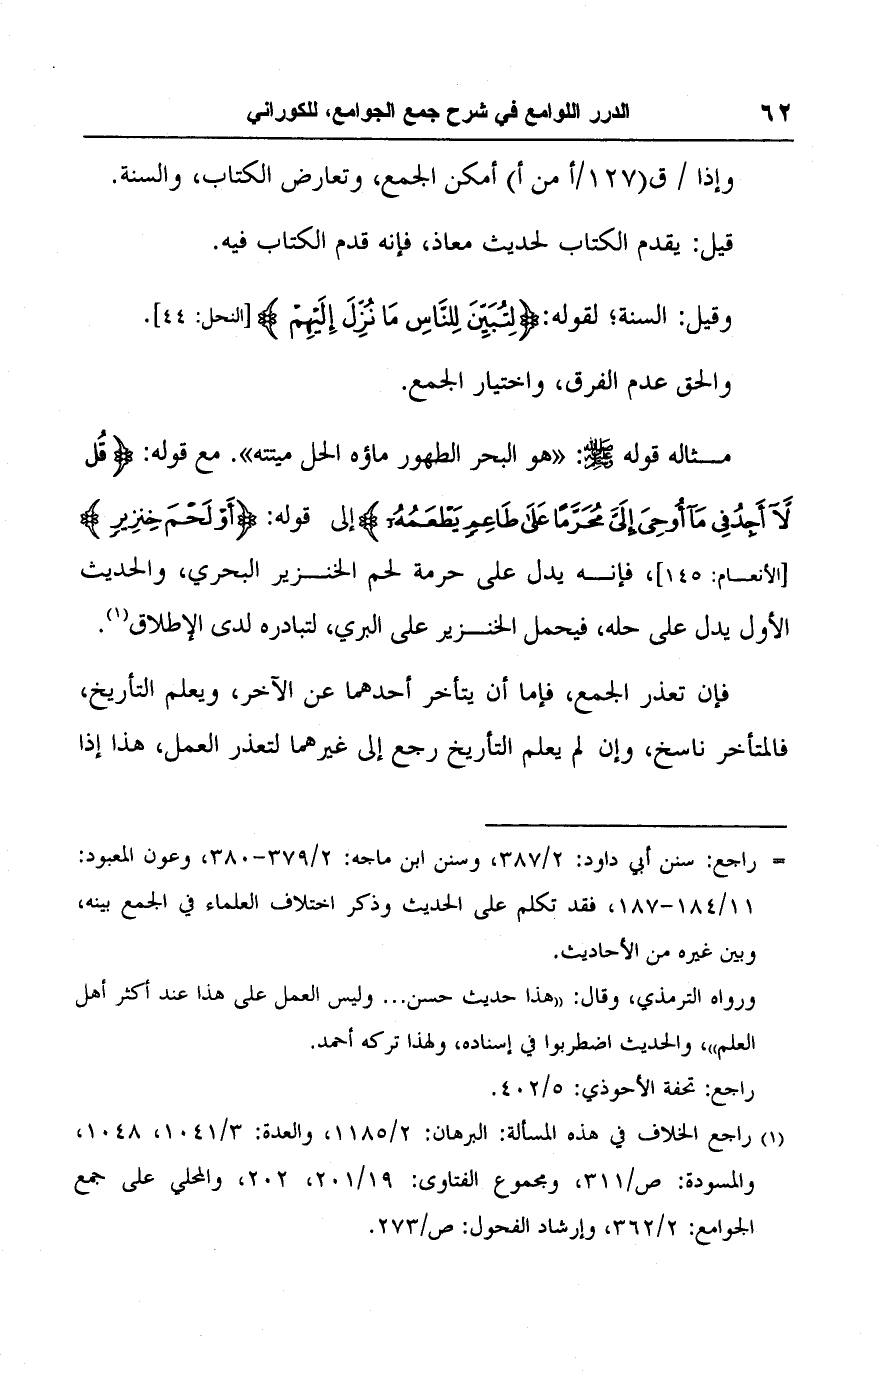 ٦٢ الدرر اللوامع في شرح جمع الجوامع، للكوراني
وإذا / ق(١٢٧/أ من أ) أمكن الجمع، وتعارض الكتاب، والسنة.
قيل: يقدم الكتاب لحديث معاذ، فإنه قدم الكتاب فيه.
وقيل: السنة؛ لقوله: ﴿لِتُبَيِّنَ لِلنَّاسِ مَا نُزِّلَ إِلَيْهِمْ﴾ [النحل: ٤٤].
والحق عدم الفرق، واختيار الجمع.
مثاله قوله ﷺ: «هو البحر الطهور ماؤه الحل ميتته». مع قوله: ﴿قُل
لَّا أَجِدُ فِي مَا أُوحِيَ إِلَيَّ مُحَرَّمًا عَلَىٰ طَاعِمٍ يَطْعَمُهُ﴾ إلى قوله: ﴿أَوْ لَحْمَ خِنزِيرٍ﴾
[الأنعام: ١٤٥]، فإنه يدل على حرمة لحم الخنزير البحري، والحديث
الأول يدل على حله، فيحمل الخنزير على البري، لتبادره لدى الإطلاق(١).
فإن تعذر الجمع، فإما أن يتأخر أحدهما عن الآخر، ويعلم التأريخ،
فالمتأخر ناسخ، وإن لم يعلم التأريخ رجع إلى غيرهما لتعذر العمل، هذا إذا
= راجع: سنن أبي داود: ٣٨٧/٢، وسنن ابن ماجه: ٣٧٩/٢-٣٨٠، وعون المعبود:
١٨٤/١١-١٨٧، فقد تكلم على الحديث وذكر اختلاف العلماء في الجمع بينه،
وبين غيره من الأحاديث.
ورواه الترمذي، وقال: «هذا حديث حسن... وليس العمل على هذا عند أكثر أهل
العلم»، والحديث اضطربوا في إسناده، ولهذا تركه أحمد.
راجع: تحفة الأحوذي: ٤٠٢/٥.
(١) راجع الخلاف في هذه المسألة: البرهان: ١١٨٥/٢، والعدة: ١٠٤١/٣، ١٠٤٨،
والمسودة: ص/٣١١، ومجموع الفتاوى: ٢٠١/١٩، ٢٠٢، والمحلي على جمع
الجوامع: ٣٦٢/٢، وإرشاد الفحول: ص/٢٧٣.